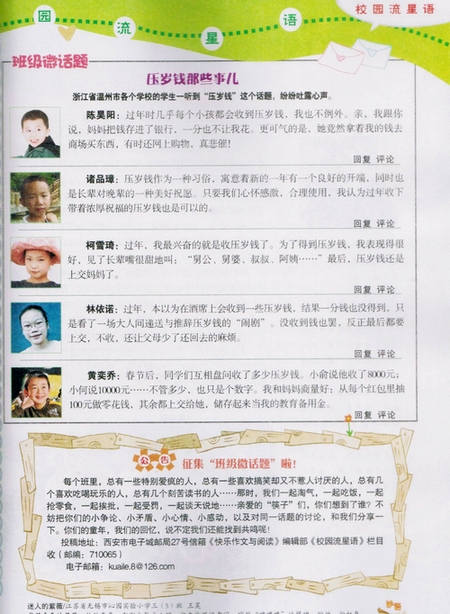 园
流
星
语
校园流星语
班级微话题
压岁钱那些事儿
浙江省温州市各个学校的学生一听到“压岁钱”这个话题，纷纷吐露心声。
陈昊阳：过年时几乎每个小孩都会收到压岁钱，我也不例外。亲，我跟你
说，妈妈把钱存进了银行，一分也不让我花。更可气的是，她竟然拿着我的钱去
商场买东西，有时还网上购物，真悲催！
回复 评论
诸品璋：压岁钱作为一种习俗，寓意着新的一年有一个良好的开端，同时也
是长辈对晚辈的一种美好祝愿。只要我们心怀感激，合理使用，我认为过年收下
带着浓厚祝福的压岁钱也是可以的。
回复 评论
柯雪琦：过年，我最兴奋的就是收压岁钱了。为了得到压岁钱，我表现得很
好，见了长辈嘴很甜地叫：“舅公、舅婆、叔叔、阿姨……”最后，压岁钱还是
上交妈妈了。
回复 评论
林依诺：过年，本以为在酒席上会收到一些压岁钱，结果一分钱也没得到，只
是看了一场大人间递送与推辞压岁钱的“闹剧”。没收到钱也罢，反正最后都要
上交，不收，还让父母少了还回去的麻烦。
回复 评论
黄奕乔：春节后，同学们互相盘问收了多少压岁钱。小俞说他收了8000元；
小何说10000元……不管多少，也只是个数字。我和妈妈商量好：从每个红包里抽
100元做零花钱，其余都上交给她，储存起来当我的教育备用金。
回复 评论
公告 征集“班级微话题”啦！
每个班里，总有一些特别爱疯的人，总有一些喜欢搞笑却又不惹人讨厌的人，总有几
个喜欢吃喝玩乐的人，总有几个刻苦读书的人……那时，我们一起淘气，一起吃饭，一起
抢零食，一起挨批，一起受罚，一起谈天说地……亲爱的“筷子”们，你们想到了谁？不
妨把你们的小争论、小矛盾、小心情、小感动，以及对同一话题的讨论，和我们分享一
下。你们的童年，我们的回忆，说不定我们还能找到共鸣呢！
投稿地址：西安市电子城邮局27号信箱《快乐作文与阅读》编辑部《校园流星语》栏目
收（邮编：710065）
电子邮箱：kuaile.8@126.com
迷人的紫薇/江苏省无锡市沁园实验小学三（5）班 王昊